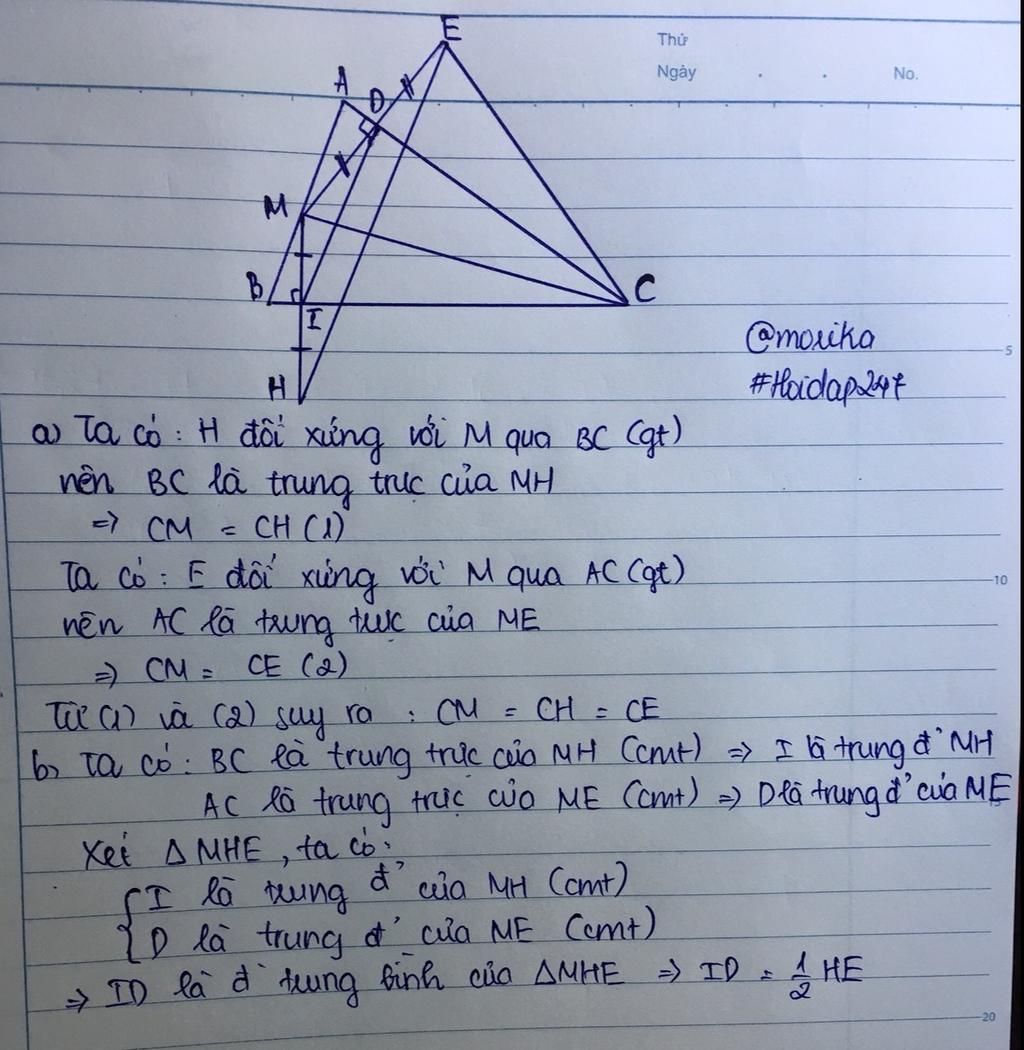 E
Thứ
Ngày . . No.
A
D
M
B
C
I
@morika
5
#Hoidap247
H
a) Ta có : H đối xứng với M qua BC (gt)
nên BC là trung trực của MH
=> CM = CH (1)
Ta có : E đối xứng với M qua AC (gt)
10
nên AC là trung trực của ME
=> CM = CE (2)
Từ (1) và (2) suy ra : CM = CH = CE
b) Ta có : BC là trung trực của MH (cmt) => I là trung đ' MH
AC là trung trực của ME (cmt) => D là trung đ' của ME
Xét Δ MHE , ta có :
{ I là trung đ' của MH (cmt)
D là trung đ' của ME (cmt)
=> ID là đ` trung bình của ΔMHE => ID = 1/2 HE
20